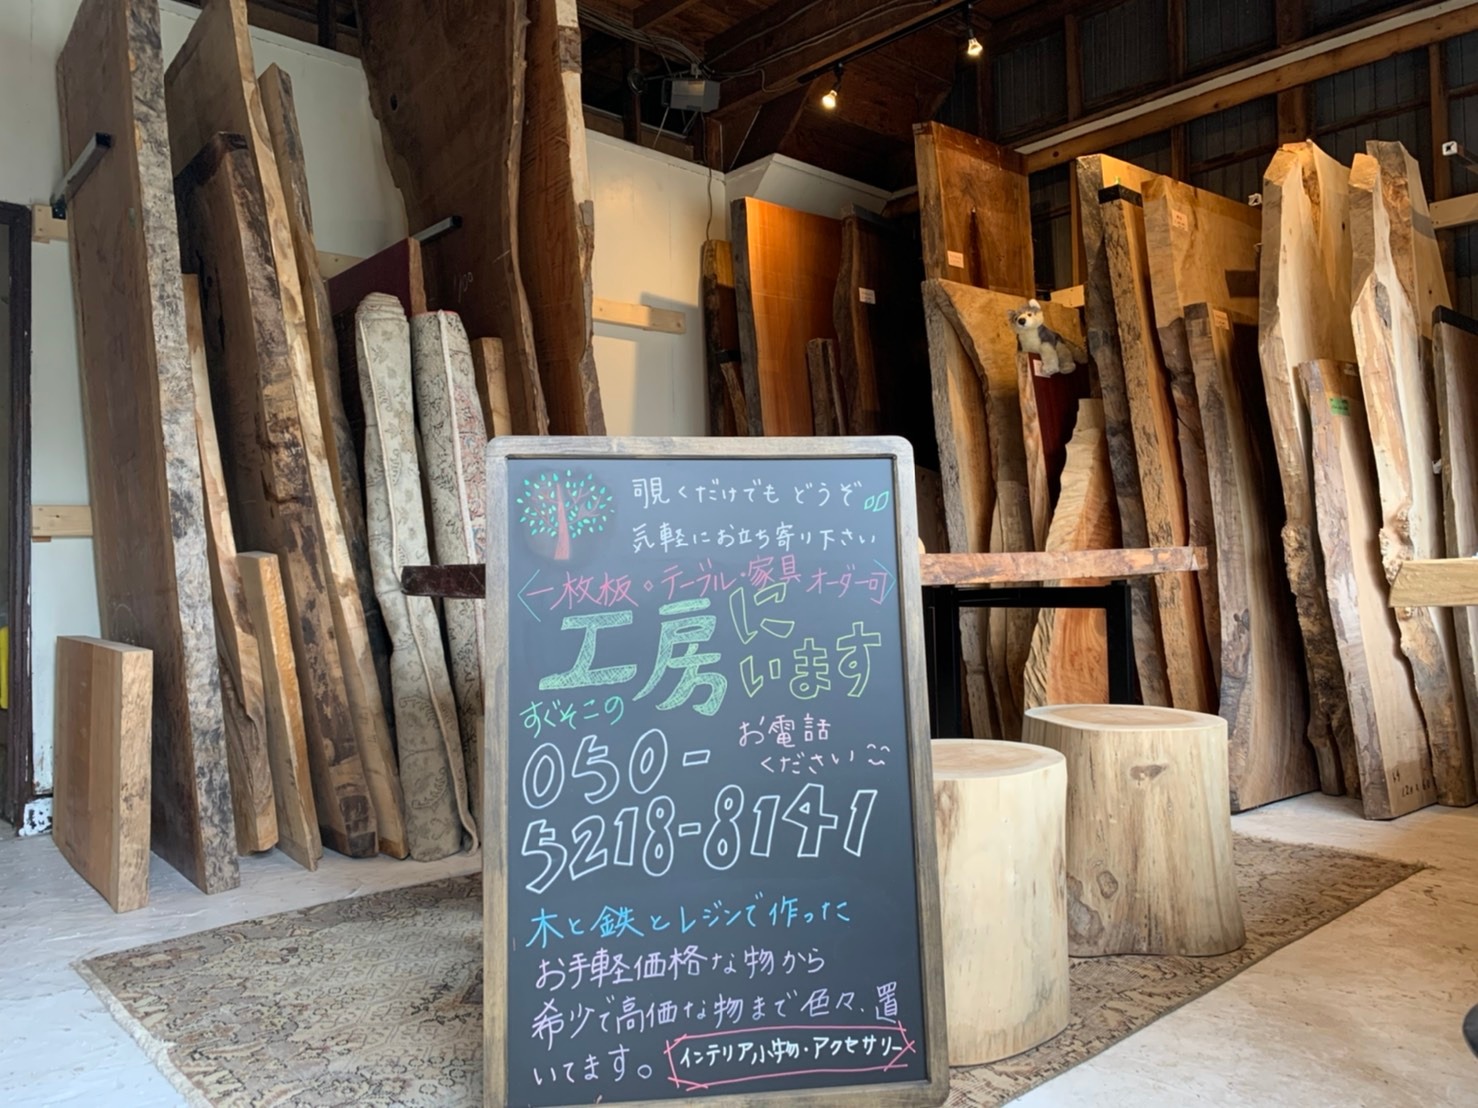 覗くだけでもどうぞ
気軽にお立ち寄り下さい
<一枚板。テーブル・家具 オーダー可>
工房に
います
すぐそこの
お電話
ください
050-
5218-8141
木と鉄とレジンで作った
お手軽価格な物から
希少で高価な物まで色々、置
いてます。
インテリア小物・アクセサリー